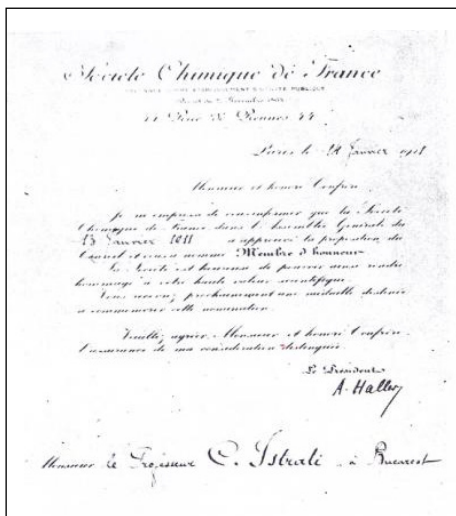 Société Chimique de France
44 Rue de Rennes 44
Paris le Janvier
Monsieur et honoré Confrère
Je m'empresse de vous informer que la Société
Chimique de France dans l'Assemblée Générale du
13 Janvier 1911 a approuvé la proposition du
Conseil et vous a nommé Membre d'honneur
La Société est heureuse de pouvoir ainsi rendre
hommage à votre haute valeur scientifique
Vous recevrez prochainement une médaille destinée
à commémorer cette nomination.
Veuillez agréer, Monsieur et honoré Confrère
l'assurance de ma considération distinguée.
Le Président
A. Haller
Monsieur le Professeur C. Istrati à Bucarest